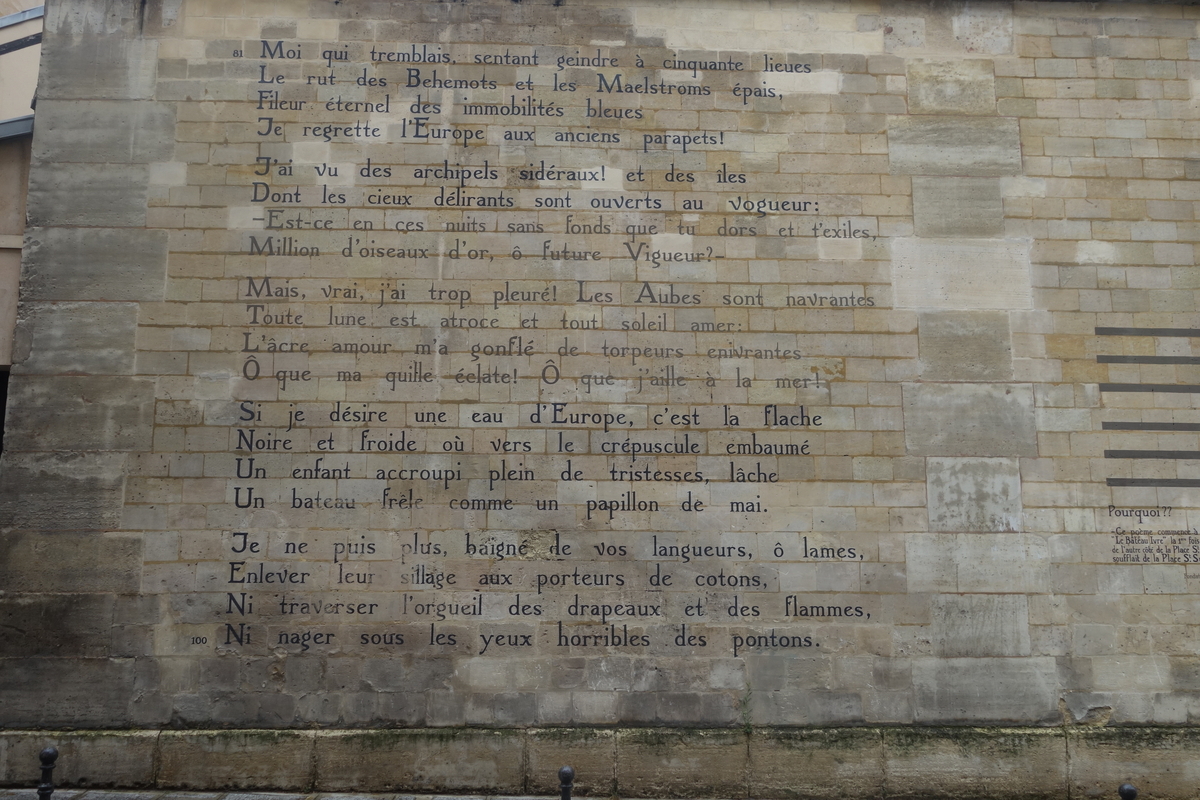 81 Moi qui tremblais, sentant geindre à cinquante lieues
Le rut des Behemots et les Maelstroms épais,
Fileur éternel des immobilités bleues
Je regrette l'Europe aux anciens parapets!
J'ai vu des archipels sidéraux! et des îles
Dont les cieux délirants sont ouverts au vogueur:
-Est-ce en ces nuits sans fonds que tu dors et t'exiles,
Million d'oiseaux d'or, ô future Vigueur?-
Mais, vrai, j'ai trop pleuré! Les Aubes sont navrantes
Toute lune est atroce et tout soleil amer:
L'âcre amour m'a gonflé de torpeurs enivrantes
Ô que ma quille éclate! Ô que j'aille à la mer!
Si je désire une eau d'Europe, c'est la flache
Noire et froide où vers le crépuscule embaumé
Un enfant accroupi plein de tristesses, lâche
Un bateau frêle comme un papillon de mai.
Je ne puis plus, baigné de vos langueurs, ô lames,
Enlever leur sillage aux porteurs de cotons,
Ni traverser l'orgueil des drapeaux et des flammes,
100 Ni nager sous les yeux horribles des pontons.
Pourquoi??
"Ce poème commence à
"Le Bateau Ivre" la 1ère fois
de l'autre côté de la Place S
soufflait de la Place St S